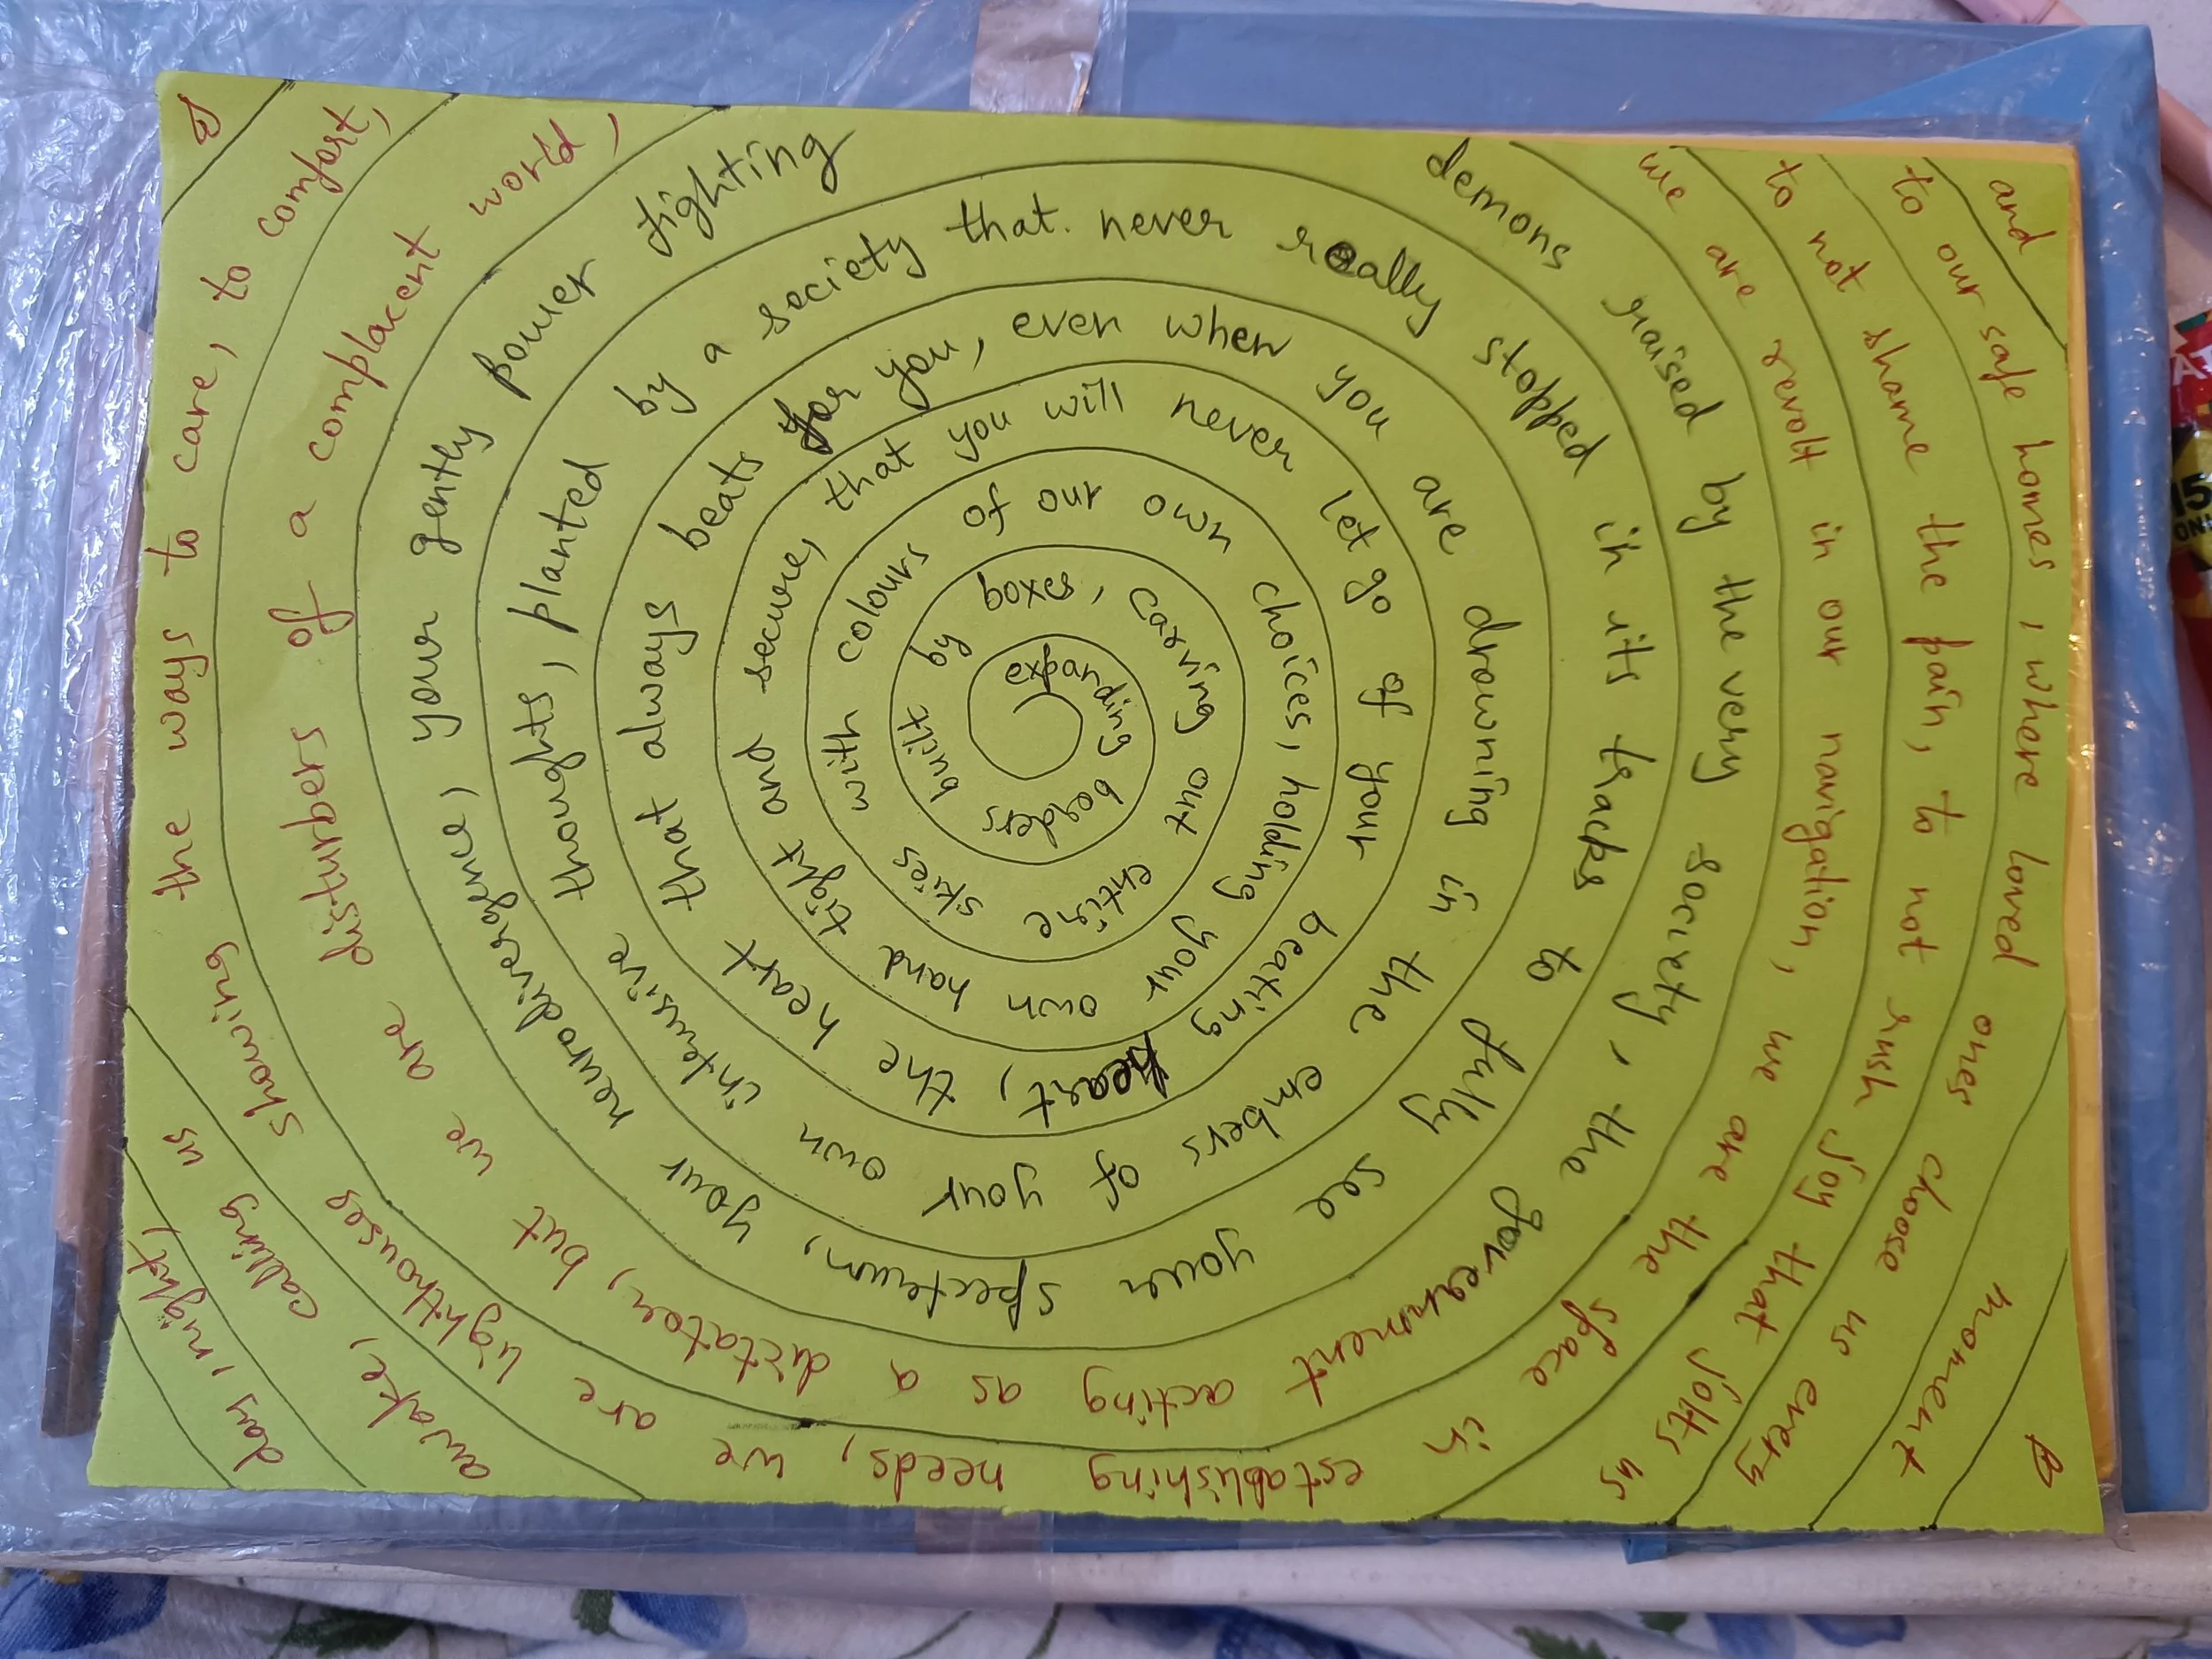 expanding borders built by
boxes, carving out entire skies with colours
of our own choices, holding your own hand tight and secure,
that you will never let go of your beating heart, the heart that always beats
for you, even when you are drowning in the embers of your own intrusive thoughts, planted
by a society that. never really stopped in its tracks to fully see your spectrum, your neurodivergence, your gently power fighting
demons raised by the very society, the government acting as a dictator, but we are disturbers of a complacent world,
we are revolt in our navigation, we are the space in establishing needs, we are lighthouses showing the ways to care, to comfort,
to not shame the pain, to not rush joy that jolts us awake, calling us
to our safe homes, where loved ones choose us every day, night,
and moment